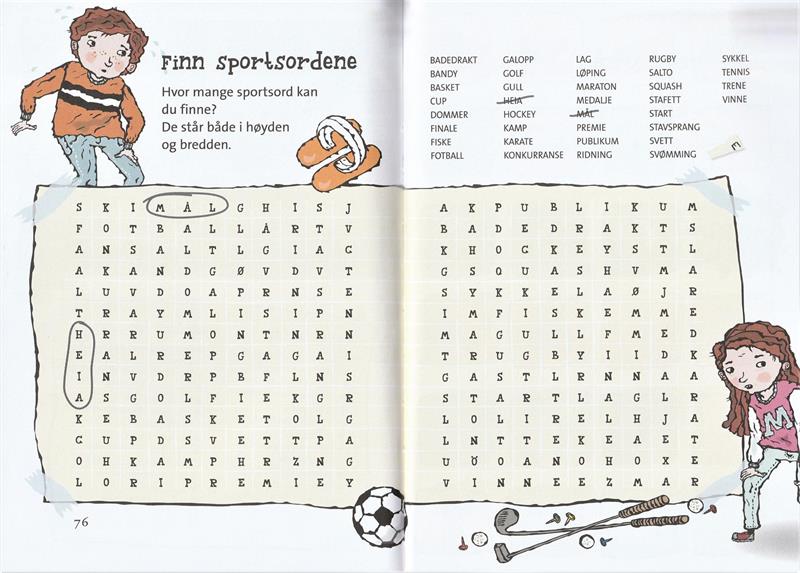 Finn sportsordene
Hvor mange sportsord kan
du finne?
De står både i høyden
og bredden.
BADEDRAKT
BANDY
BASKET
CUP
DOMMER
FINALE
FISKE
FOTBALL
GALOPP
GOLF
GULL
HEIA
HOCKEY
KAMP
KARATE
KONKURRANSE
LAG
LØPING
MARATON
MEDALJE
MÅL
PREMIE
PUBLIKUM
RIDNING
RUGBY
SALTO
SQUASH
STAFETT
START
STAVSPRANG
SVETT
SVØMMING
SYKKEL
TENNIS
TRENE
VINNE
S K I M Å L G H I S J
F O T B A L L Å R T V
A N S A L T L G I A C
A K A N D G Ø V D V T
L U V D O A P R N S E
T R A Y M L I S I P N
H R R U M O N T N R N
E A L R E P G A G A I
I N V D R P B F L N S
A S G O L F I E K G R
K E B A S K E T O L G
C U P D S V E T T P A
O H K A M P H R Z N G
L O R I P R E M I E Y
A K P U B L I K U M
B A D E D R A K T S
K H O C K E Y S T L
G S Q U A S H V M A
S Y K K E L A Ø J R
I M F I S K E M M E
M A G U L L F M E D
T R U G B Y I I D K
G A S T L R N N A A
S T A R T L A G L R
L O L I R E L H J A
L N T T E K E A E T
U Ö O A N O H O X E
V I N N E E Z M A R
M
76